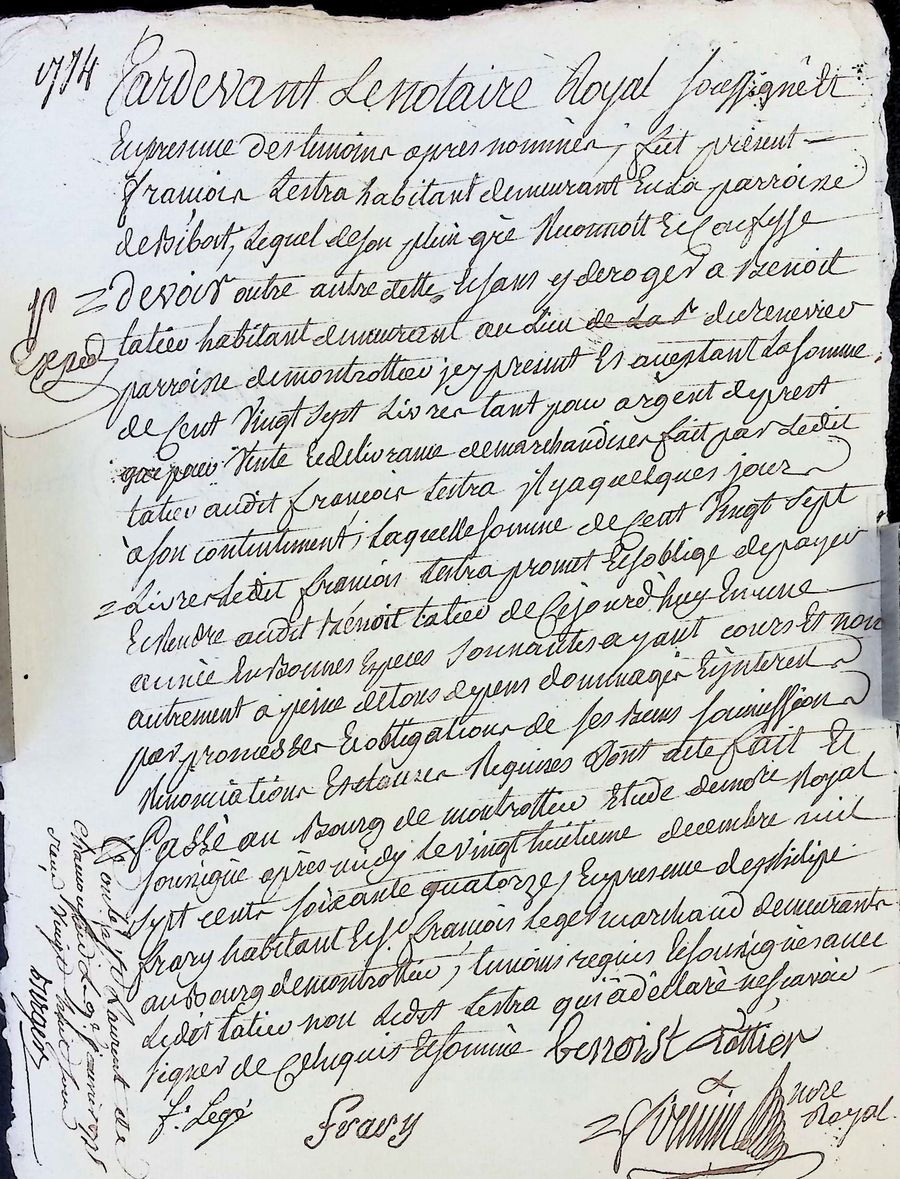 1774
Pardevant Le notaire Royal soussigné et
En presence des temoins apres nommés, fut présent
françois Lestra habitant demeurant En La parroisse
de Bibost, Lequel de son plein gré Reconnoit Et Confesse
Devoir outre autre dette Et sans y deroger a Benoit
tatier habitant demeurant au Lieu de La r du
parroisse de montrottier jcy present Et acceptant La somme
de Cent Vingt Sept Livres tant pour argent de prest
que pour Vente Et delivrance de marchandises fait par Ledit
tatier audit françois Lestra il y a quelques jour
à son contentement, Laquelle somme de Cent Vingt Sept
Livres Ledit françois Lestra promet Et s'oblige de payer
Et Rendre audit Bénoit tatier de Cejourd'huy En une
année En Bonnes Especes Sonnantes ayant cours Et non
autrement a peine de tous depens dommages Et jnterets
par promesses Et obligations de ses Biens soumissions
Renonciations Et clauses Requises Dont acte fait Et
Passé au Bourg de montrottier Etude de nore Royal
soussigné apres midy Le vingt huitieme decembre mil
sept cents soixante quatorze, En presence de philipe
frary habitant Et sr. françois Leger marchand demeurants
au Bourg de montrottier, temoins requis Et soussignés avec
Ledit tatier non Ledit Lestra qui a déclaré ne scavoir
signer de Ce Enquis Et sommé benoist tattier
f. Legé
Fravy
nore
Royal
Exped
Con.lé à St Laurent de
Chamousset Le 9e janvier 1775